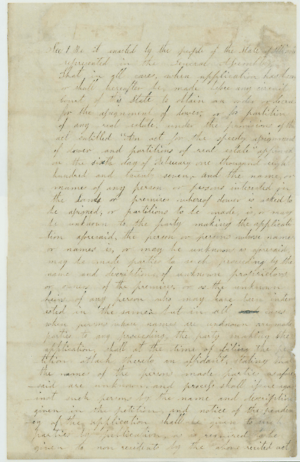 Sec 1 Be it enacted by the people of the State of
represented in the General Assembly
That in all cases, when application has been
or shall hereafter be made before any circuit
Court of this State to obtain an order
for the assignment of dower, or for partition
of any real estate under the provisions of the
act entitled "An act for the speedy assignment
of dower and partitions of real estate" approved
on the sixth day of February one thousand eight
hundred and twenty seven, and the name or
names of any person or persons interested in
the lands or premises whereof dower is asked to
be assigned, or partitions to be made, is or may
be unknown to the party making the applica
tion aforesaid, the person or persons whose name
or names is, or may be unknown as aforesaid,
may be made parties to such proceeding by the
name and description of unknown proprietors
or owners of the premises, or as the unknown
heirs of any person who may have been inter
ested in the same. but in all cases
where persons whose names are unknown are made
parties to any proceeding, the party making the
application, shall at the time of filing the peti
tion, attach thereto an affidavit stating that
the names of the persons made parties as afore
said are unknown and process shall issue ag
ainst such persons by the name and description
given in the petition, and notice of the penden
cy of this application shall be given to such
parties by publication, as is required to be
given to non resident by the above recited act